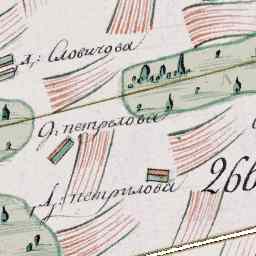 д: Словичова
д: петрилова
д: петрилова
266